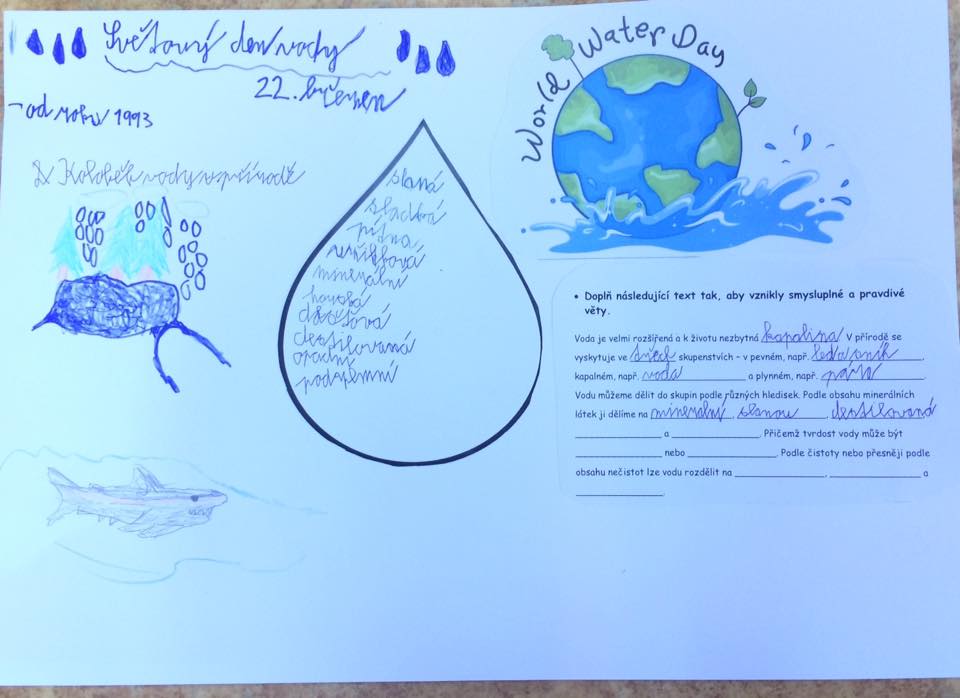 Světový den vody
22. březen
- od roku 1993
Koloběh vody v přírodě
slaná
sladká
pitná
užitková
minerální
horká
dešťová
destilovaná
odpadní
podzemní
World Water Day
• Doplň následující text tak, aby vznikly smysluplné a pravdivé
věty.
Voda je velmi rozšířená a k životu nezbytná kapalina. V přírodě se
vyskytuje ve třech skupenstvích – v pevném, např. led a sníh,
kapalném, např. voda a plynném, např. pára.
Vodu můžeme dělit do skupin podle různých hledisek. Podle obsahu minerálních
látek ji dělíme na minerální, slanou, destilovaná
a . Přičemž tvrdost vody může být
nebo . Podle čistoty nebo přesněji podle
obsahu nečistot lze vodu rozdělit na , a
.